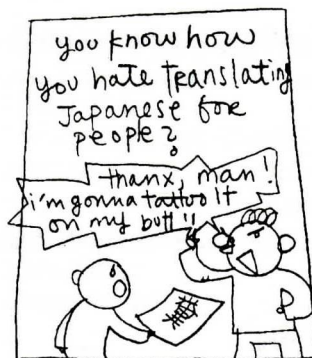 you know how
you hate translating
Japanese for
people?
thanx, man!
i'm gonna tattoo it
on my butt!!